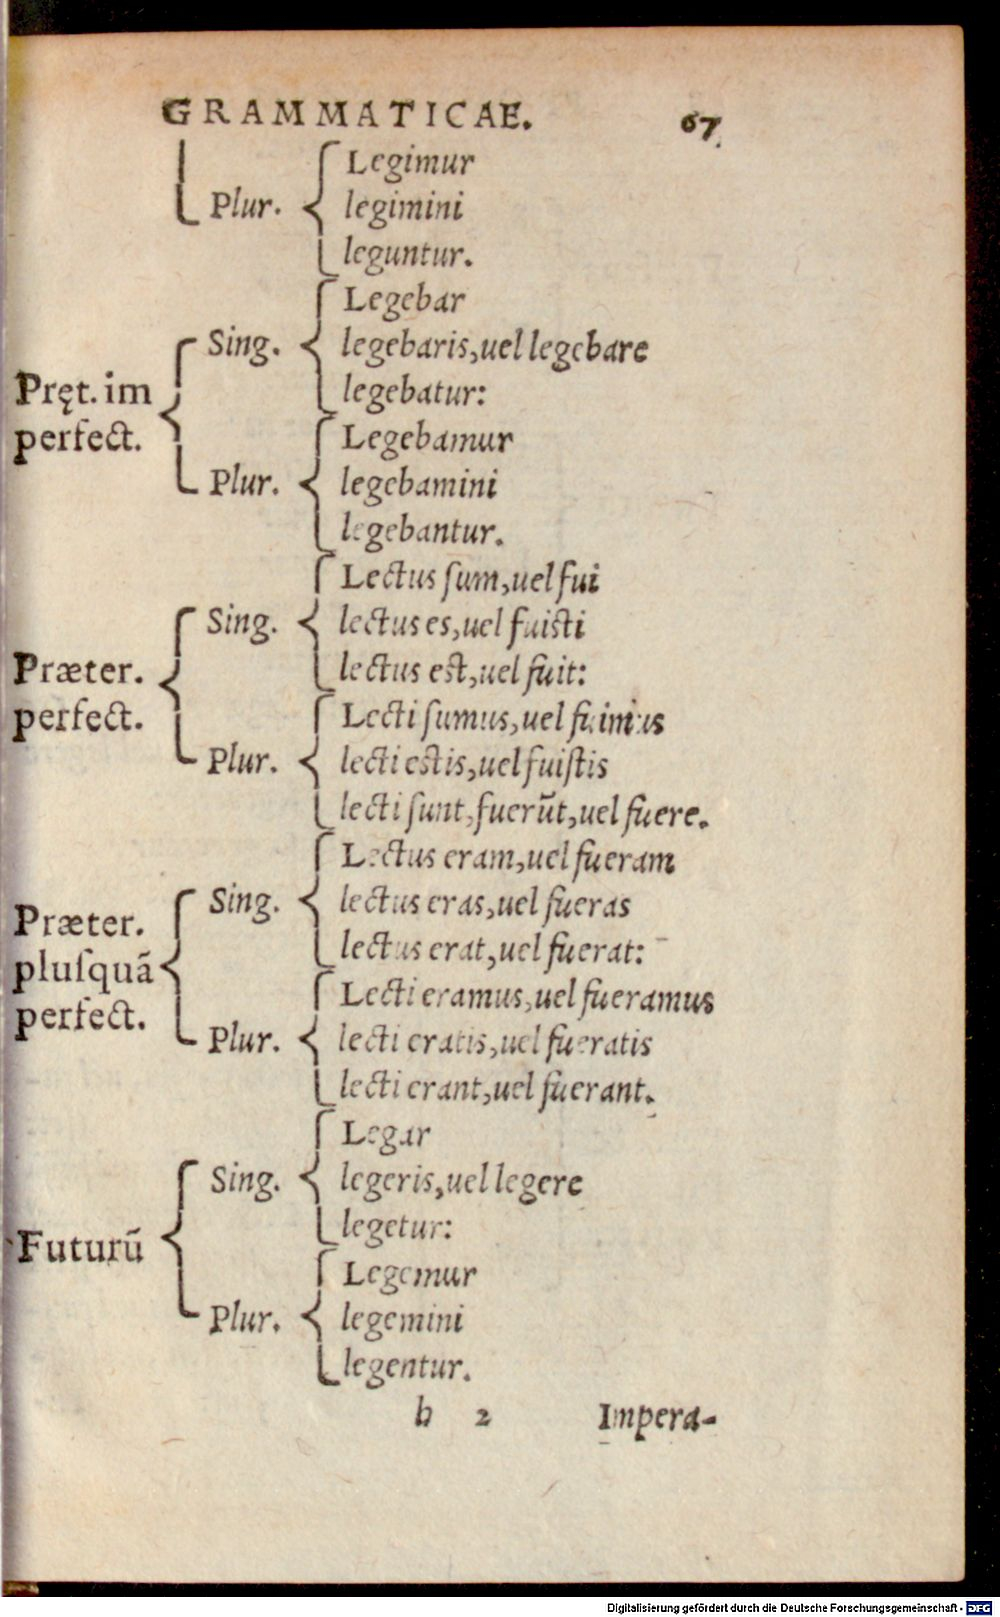 GRAMMATICAE. 67
Legimur
Plur. legimini
leguntur.
Legebar
Sing. legebaris, uel legebare
legebatur:
Pręt. im
perfect.
Legebamur
Plur. legebamini
legebantur.
Lectus ſum, uel fui
Sing. lectus es, uel fuisti
lectus est, uel fuit:
Præter.
perfect.
Lecti ſumus, uel fuimus
Plur. lecti estis, uel fuiſtis
lecti ſunt, fuerūt, uel fuere.
Lectus eram, uel fueram
Sing. lectus eras, uel fueras
lectus erat, uel fuerat:
Præter.
pluſquā
perfect.
Lecti eramus, uel fueramus
Plur. lecti eratis, uel fueratis
lecti erant, uel fuerant.
Legar
Sing. legeris, uel legere
legetur:
Futurū
Legemur
Plur. legemini
legentur.
h 2 Impera-
Digitalisierung gefördert durch die Deutsche Forschungsgemeinschaft - DFG